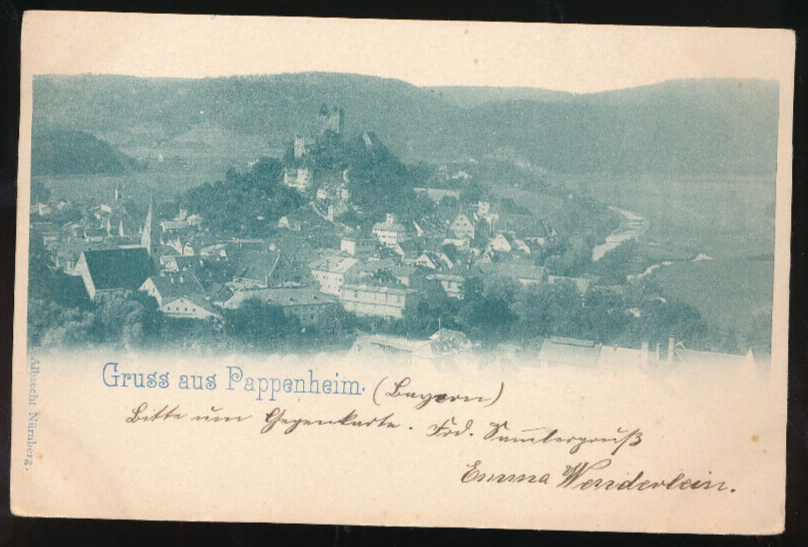 Gruss aus Pappenheim. (Bayern)
Bitte um Gegenkarte. Frd. Sammlergruß
Emma Wenderlein.
Albrecht Nürnberg.